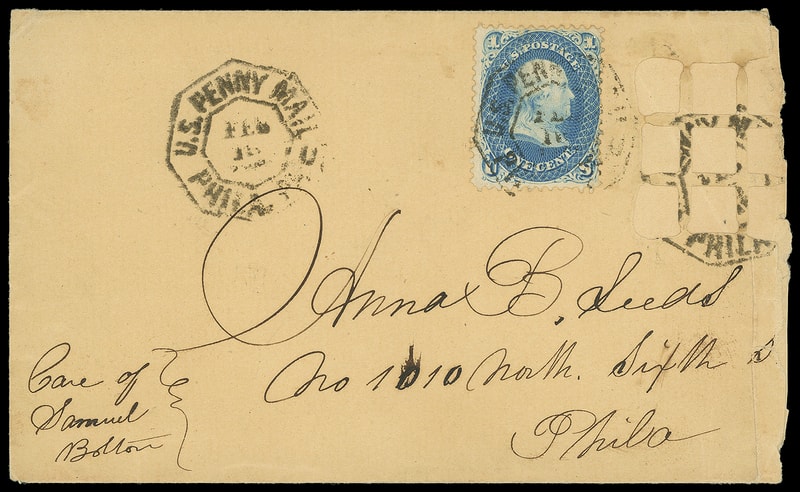 U.S. PENNY MAIL
FEB
18
PHILA
1 U.S. POSTAGE 1
U.S. PENNY
ONE CENT
PHILA
Anna B, Leeds
No 1010 North. Sixth S
Phila
Care of
Samuel
Bolton